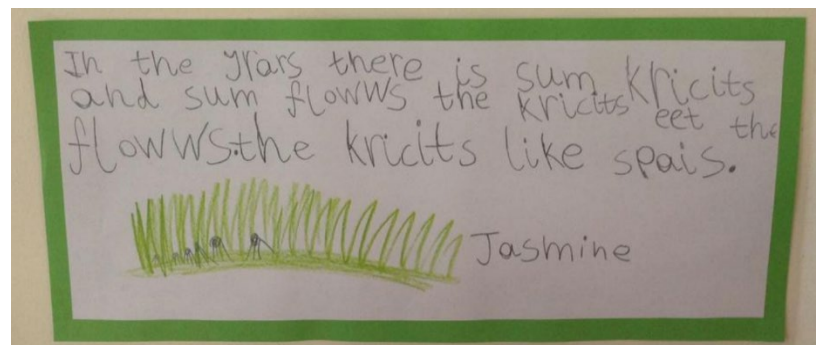 In the grars there is sum kricits
and sum flowws the kricits eet the
flowws.the kricits like spais.
Jasmine